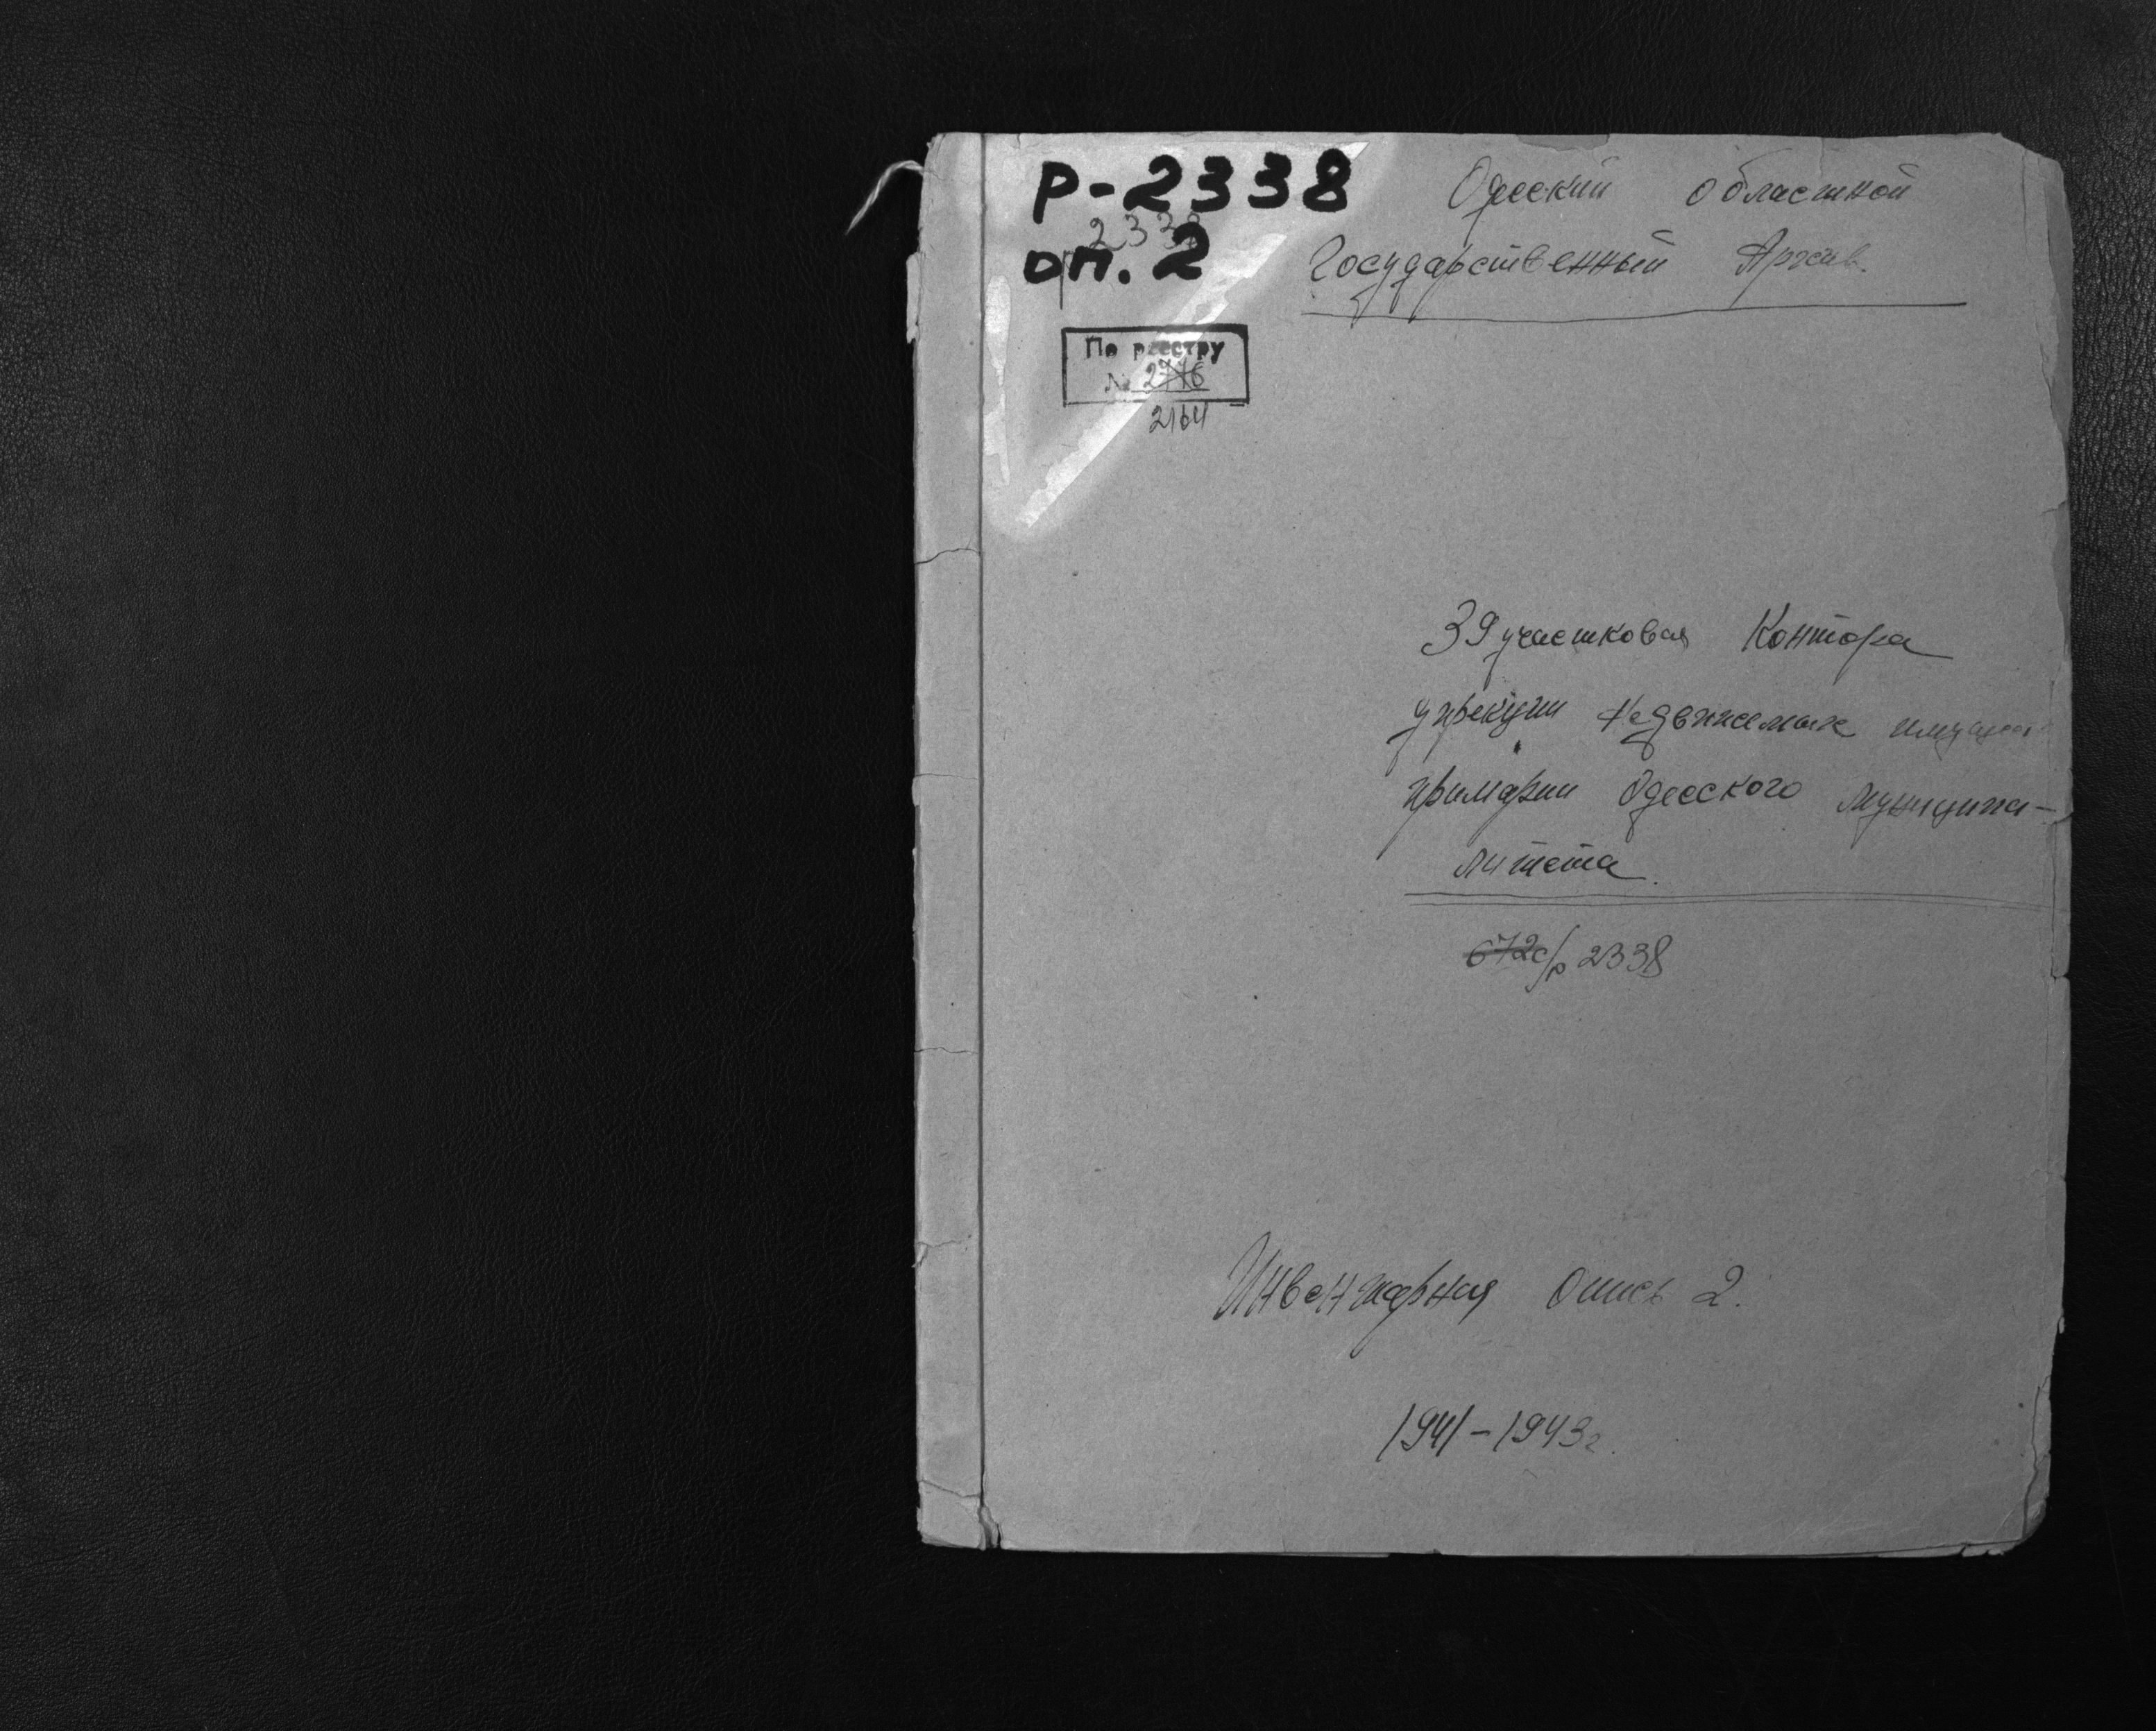 Р-2338
2338
оп. 2
Одесский областной
Государственный Архив.
По реестру
№ 2776
2164
39 участковая Контора
дирекции недвижимых имущест
примарии Одесского муниципа-
литета.
672с/р 2338
Инвентарная Опись 2.
1941-1943г.